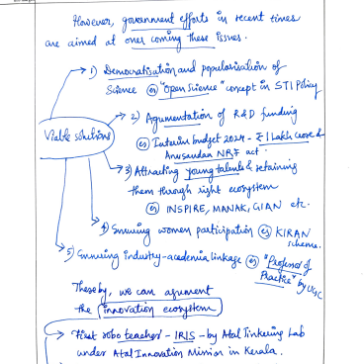 However, government efforts in recent times
are aimed at over coming these issues.
1) Democratisation and popularisation of
Science eg "Open Science" concept in STI Policy
2) Agumentation of R&D funding
eg Interim budget 2024 - ₹1 Lakh crore &
Anusandan NRF act.
Viable solutions
3) Attracting young talents & retaining
them through right ecosystem
eg INSPIRE, MANAK, GIAN etc.
4) Ensuring women participation eg KIRAN
scheme.
5) Ensuring industry-academia linkage eg "Professor of
Practice" by UGC
Thereby, we can agument
the innovation ecosystem
First robo teacher - IRIS - by Atal Tinkering Lab
under Atal Innovation Mission in Kerala.